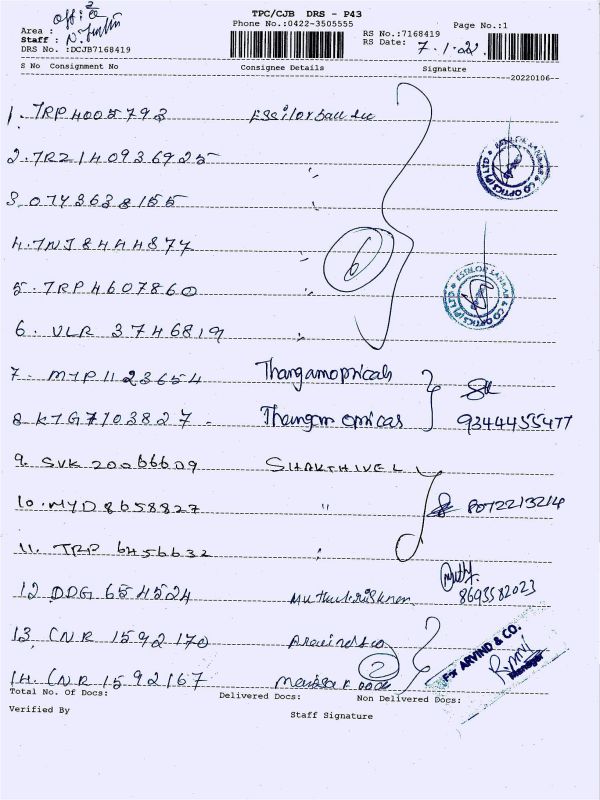 TPC/CJB DRS - P43
Phone No.:0422-3505555
Page No.:1
Office
Area :
Staff :
DRS No. :DCJB7168419
RS No.:7168419
RS Date: 7.1.22
S No Consignment No Consignee Details Signature
20220106
1. TRP 4005793
2. TRZ 140936925
3. 0743638155
4. TNJ 8444877
5. TRP 4607860
6
6. VLR 3746819
7. MTP 1123654
8. KTG 7103827
9344455477
9. SVK 20066609 SHAKTHIVEL
10. MYD 8658827 "
11. TRP 6456632
12 DDG 654524 Muthukrishnan
8695582023
13. CNR 1592170
2
14. CNR 1592167
For ARVIND & CO.
Manager
Total No. Of Docs: Delivered Docs: Non Delivered Docs:
Verified By
Staff Signature